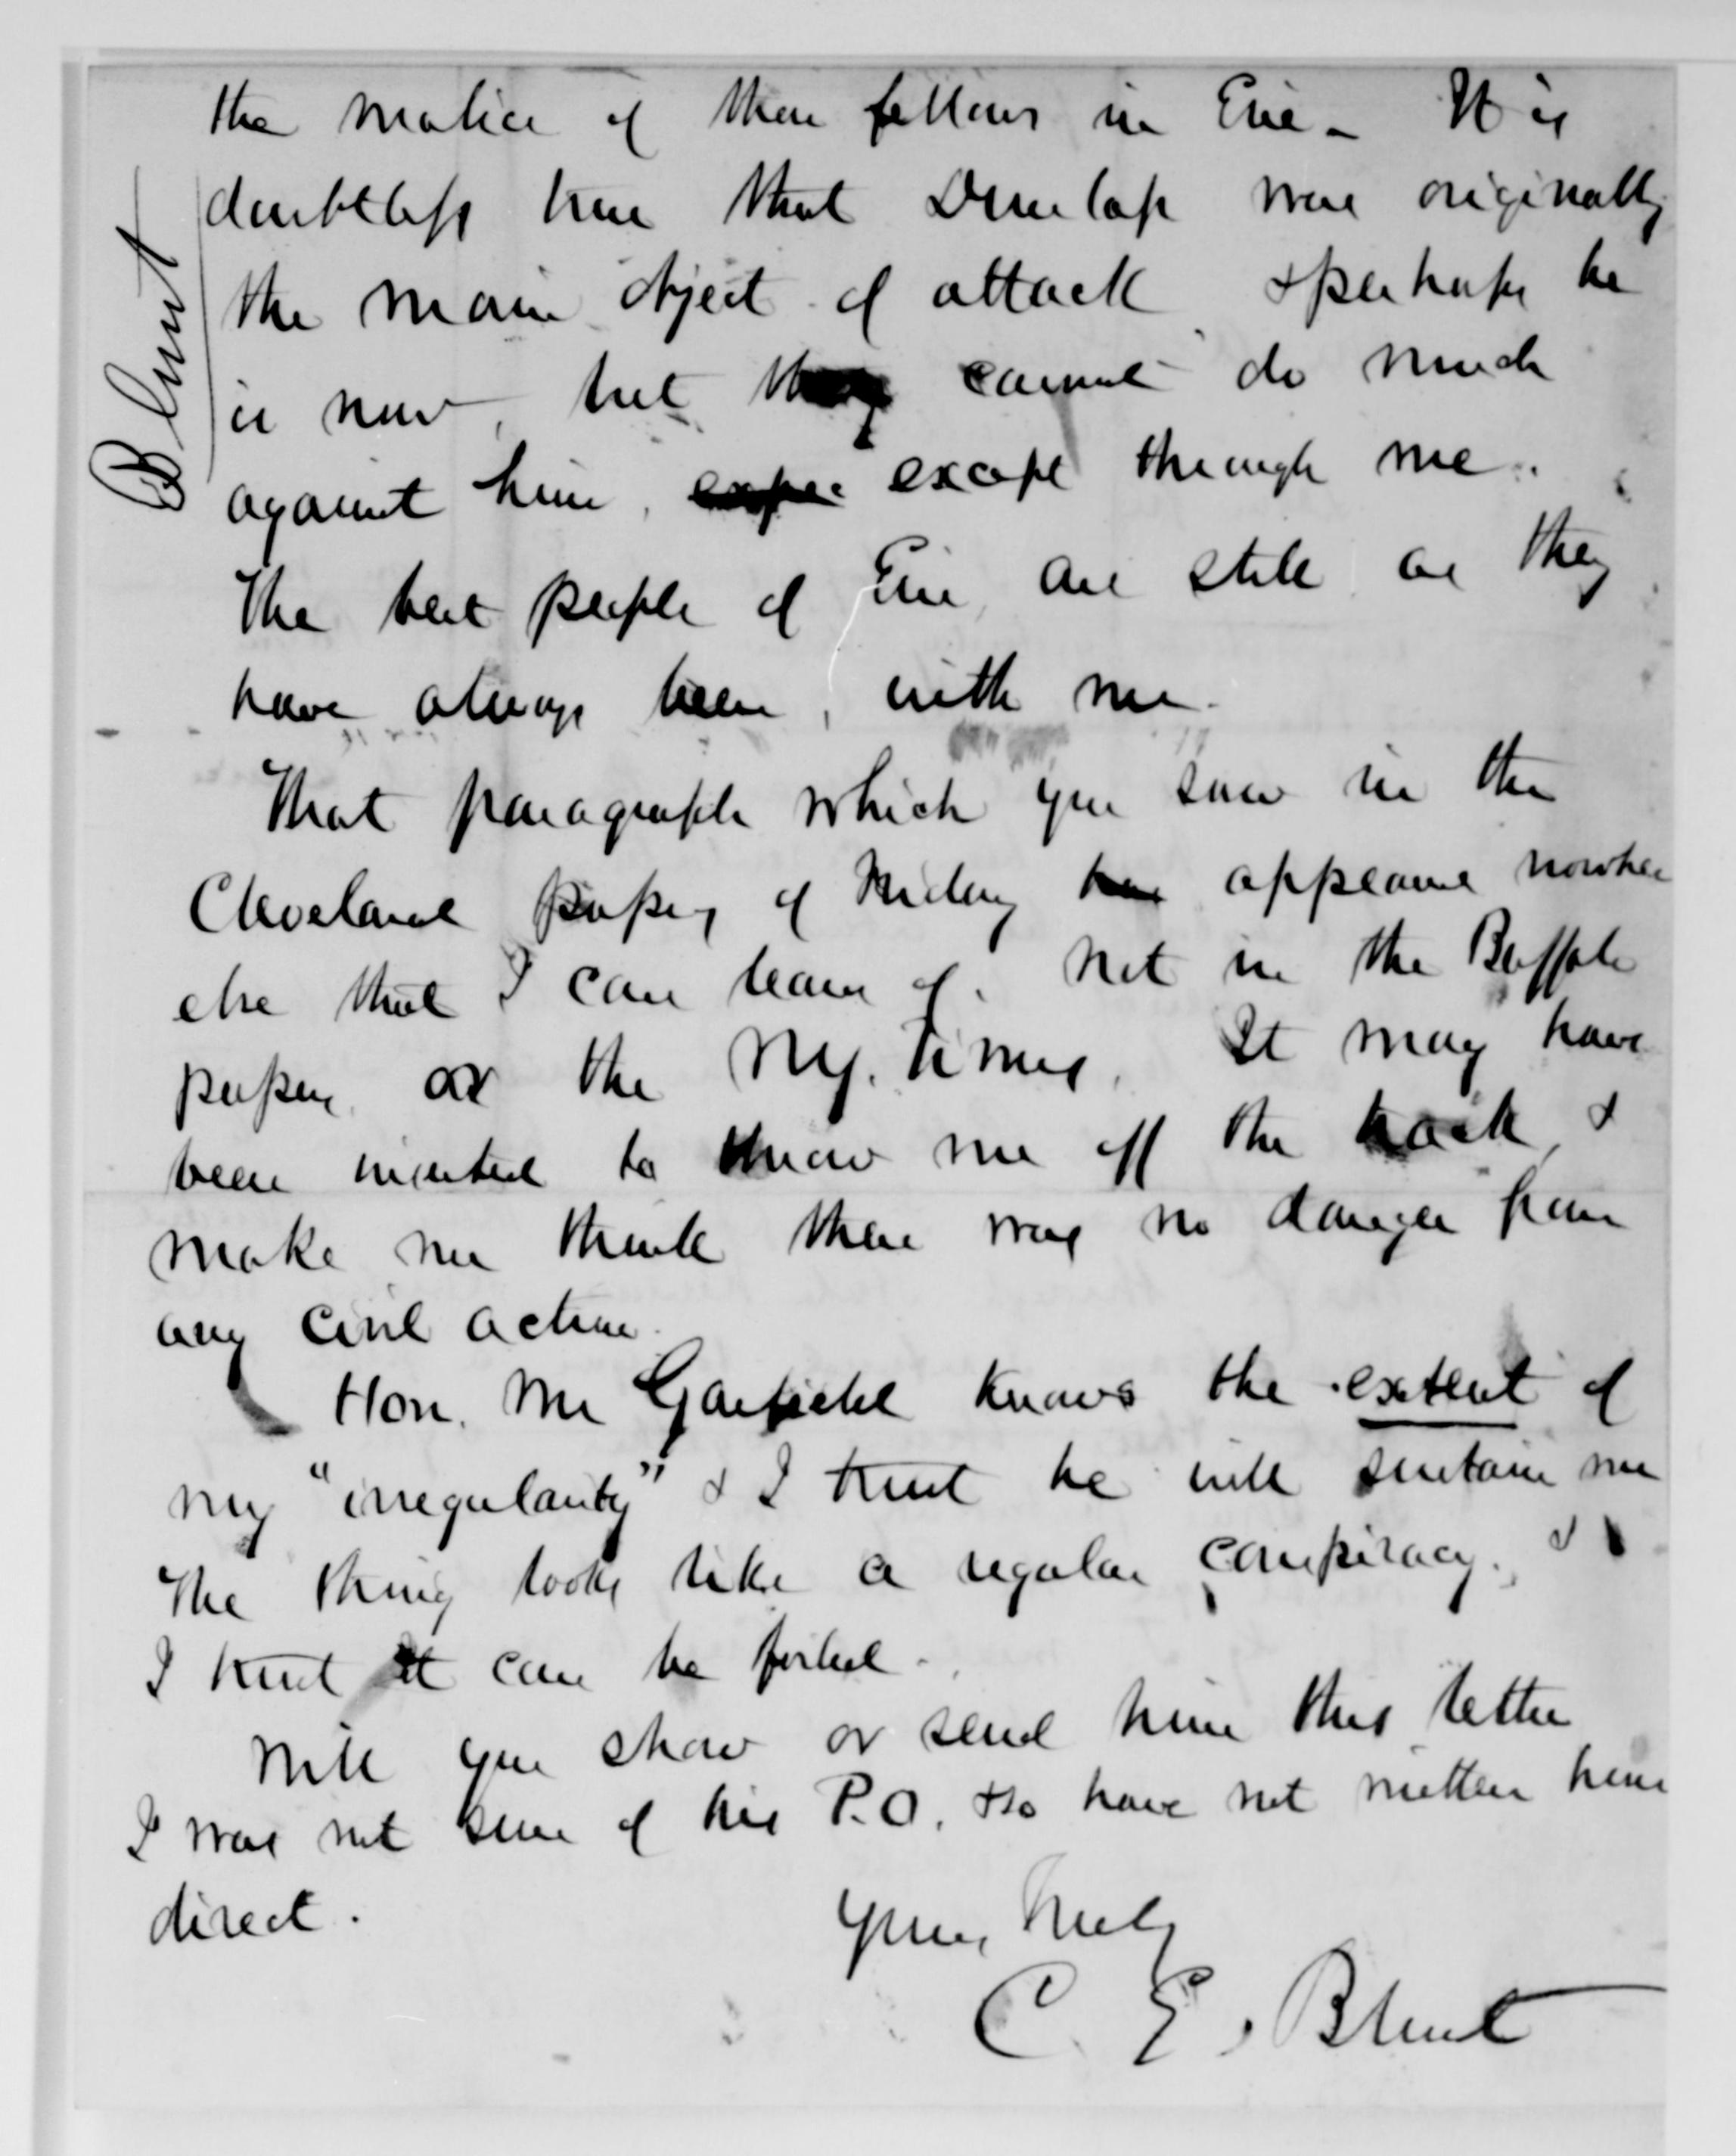 Blunt
the malice of those fellows in Erie - It is
doubtless true that Dunlap was originally
the main object of attack & perhaps he
is now, but they cannot do much
against him, except through me.
The best people of Erie, are still as they
have always been, with me.
That paragraph which you saw in the
Cleveland papers of Friday appeared nowhere
else that I can learn of. Not in the Buffalo
papers or the N.Y. Times. It may have
been inserted to throw me off the track, &
make me think there was no danger from
any civil action.
Hon. Mr Garfield knows the extent of
my "irregularity" & I trust he will sustain me
The thing looks like a regular conspiracy, &
I trust it can be foiled.
Will you show or send him this letter
I was not sure of his P.O. & so have not written him
direct.
Yours truly
C. E. Blunt